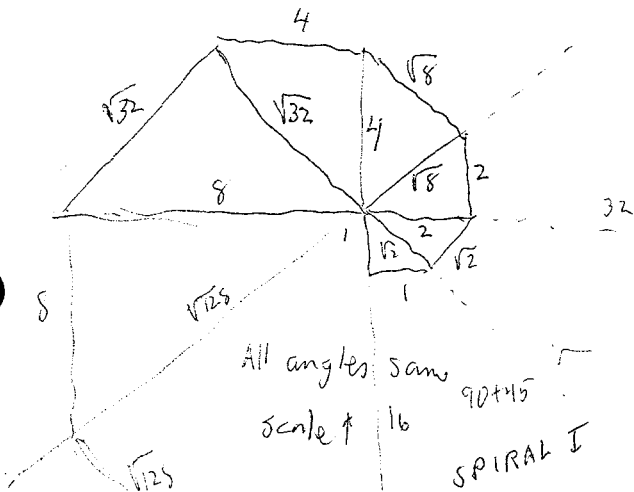 4
√8
√32
√32
4
√8
2
8
2
32
1
√2
√2
1
8
√128
All angles same
90+45
scale ↑
16
SPIRAL I
√128